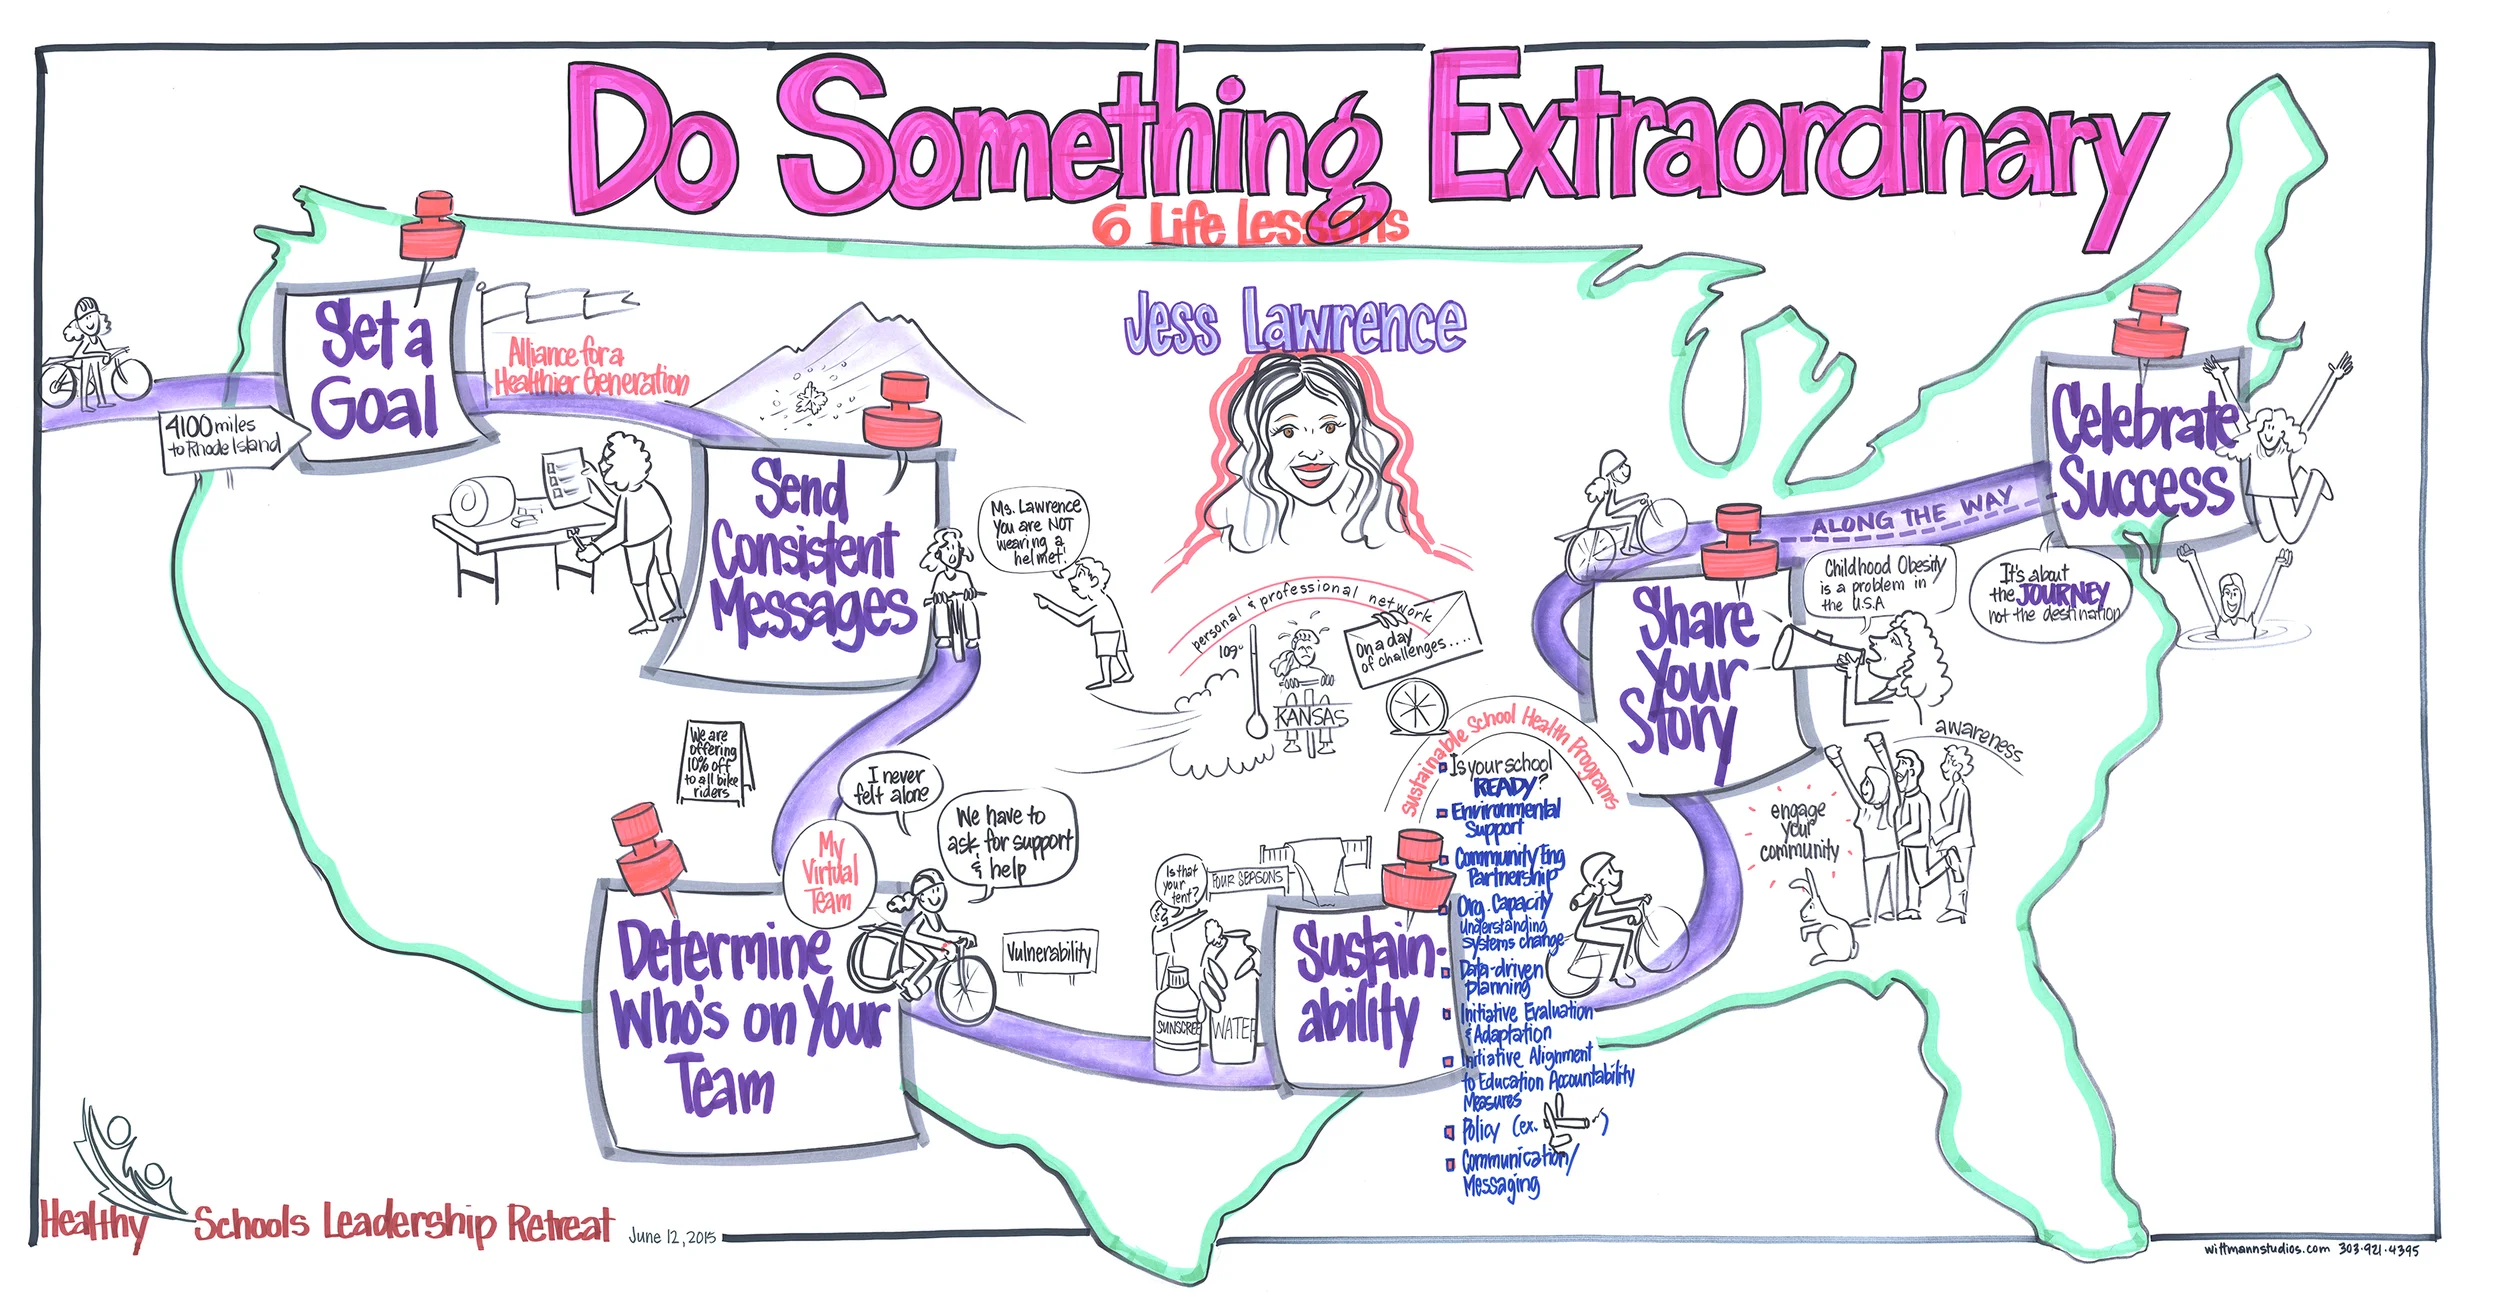 Do Something Extraordinary
6 Life Lessons
Set a
Goal
4100 miles
to Rhode Island
Alliance for a
Healthier Generation
Send
Consistent
Messages
Ms. Lawrence
You are NOT
wearing a
helmet!
We are
offering
10% off
to all bike
riders
Determine
Who's on Your
Team
My
Virtual
Team
I never
felt alone
We have to
ask for support
& help
Vulnerability
Jess Lawrence
personal & professional network
109°
KANSAS
On a day
of challenges....
Is that
your
tent?
FOUR SEASONS
SUNSCREE
WATER
Sustain-
ability
Sustainable School Health Programs
Is your school
READY?
Environmental
Support
Community Eng
Partnership
Org. Capacity
Understanding
systems change
Data-driven
planning
Initiative Evaluation
& Adaptation
Initiative Alignment
to Education Accountability
Measures
Policy (ex. )
Communication/
Messaging
Share
Your
Story
Childhood Obesity
is a problem in
the U.S.A
awareness
engage
your
community
ALONG THE WAY
Celebrate
Success
It's about
the JOURNEY
not the destination
Healthy Schools Leadership Retreat June 12, 2015
wittmannstudios.com 303·921·4395